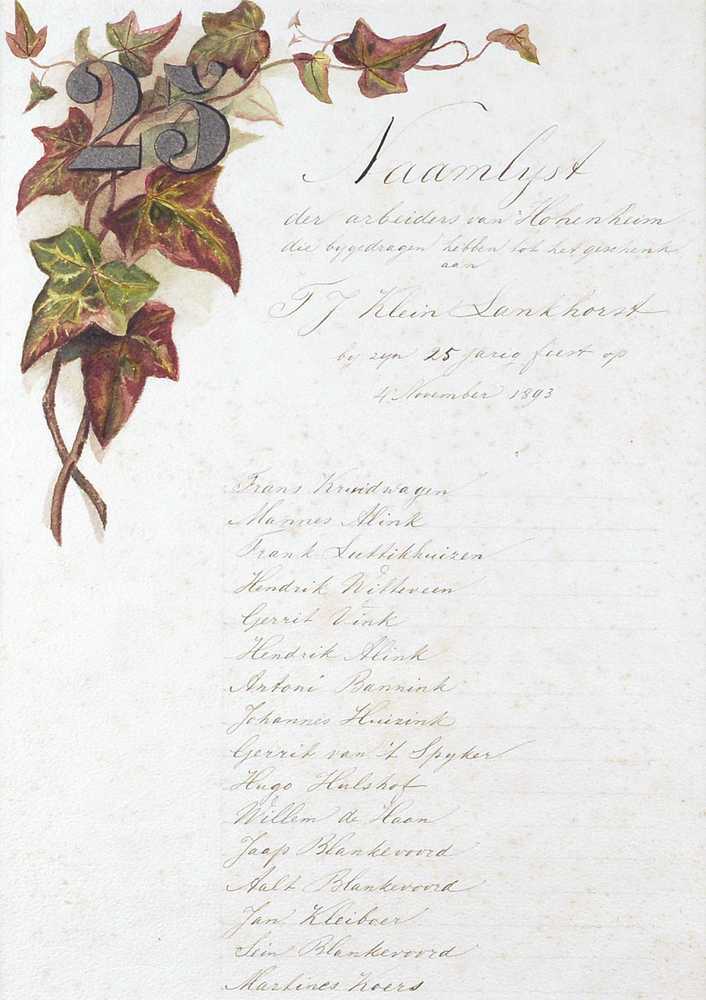 25
Naamlyst
der arbeiders van Hohenheim
die bygedragen hebben tot het geschenk
aan
T J Klein Lankhorst
by zyn 25 jarig feest op
4 November 1893
Frans Kruidwagen
Mannes Alink
Frank Luttikhuizen
Hendrik Witteveen
Gerrit Vink
Hendrik Alink
Antoni Bannink
Johannes Huizink
Gerrit van 't Spyker
Hugo Hulshof
Willem de Haan
Jaap Blankevoord
Aalt Blankevoord
Jan Kleiboer
Sein Blankevoord
Martines Koers